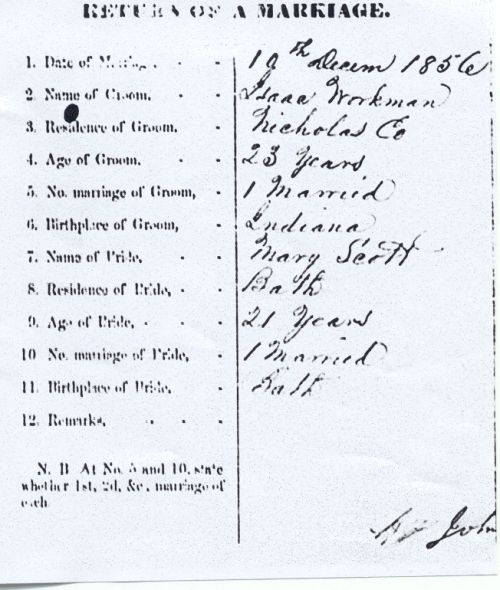 RETURN OF A MARRIAGE.
1. Date of Marriage, - - 10th Decem 1856
2. Name of Groom, - Isaac Workman
3. Residence of Groom, - Nicholas Co
4. Age of Groom, - - 23 Years
5. No. marriage of Groom, - 1 Married
6. Birthplace of Groom, - Indiana
7. Name of Bride, - - Mary Scott
8. Residence of Bride, - - Bath
9. Age of Bride, - - - 21 Years
10 No. marriage of Bride, - 1 Married
11. Birthplace of Bride, - Bath
12. Remarks, - - -
N. B. At No. 5 and 10, state
whether 1st, 2d, &c, marriage of
each.
John